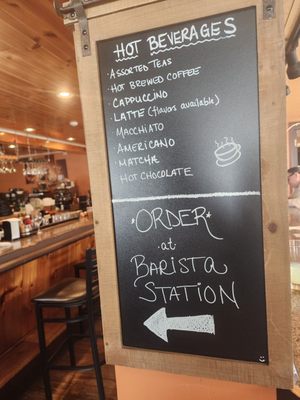 HOT BEVERAGES
· ASSORTED TEAS
· HOT BREWED COFFEE
· CAPPUCCINO
· LATTE (flavors available)
MACCHIATO
· AMERICANO
· MATCHA
HOT CHOCOLATE
*ORDER*
· at ·
BARISTA
STATION